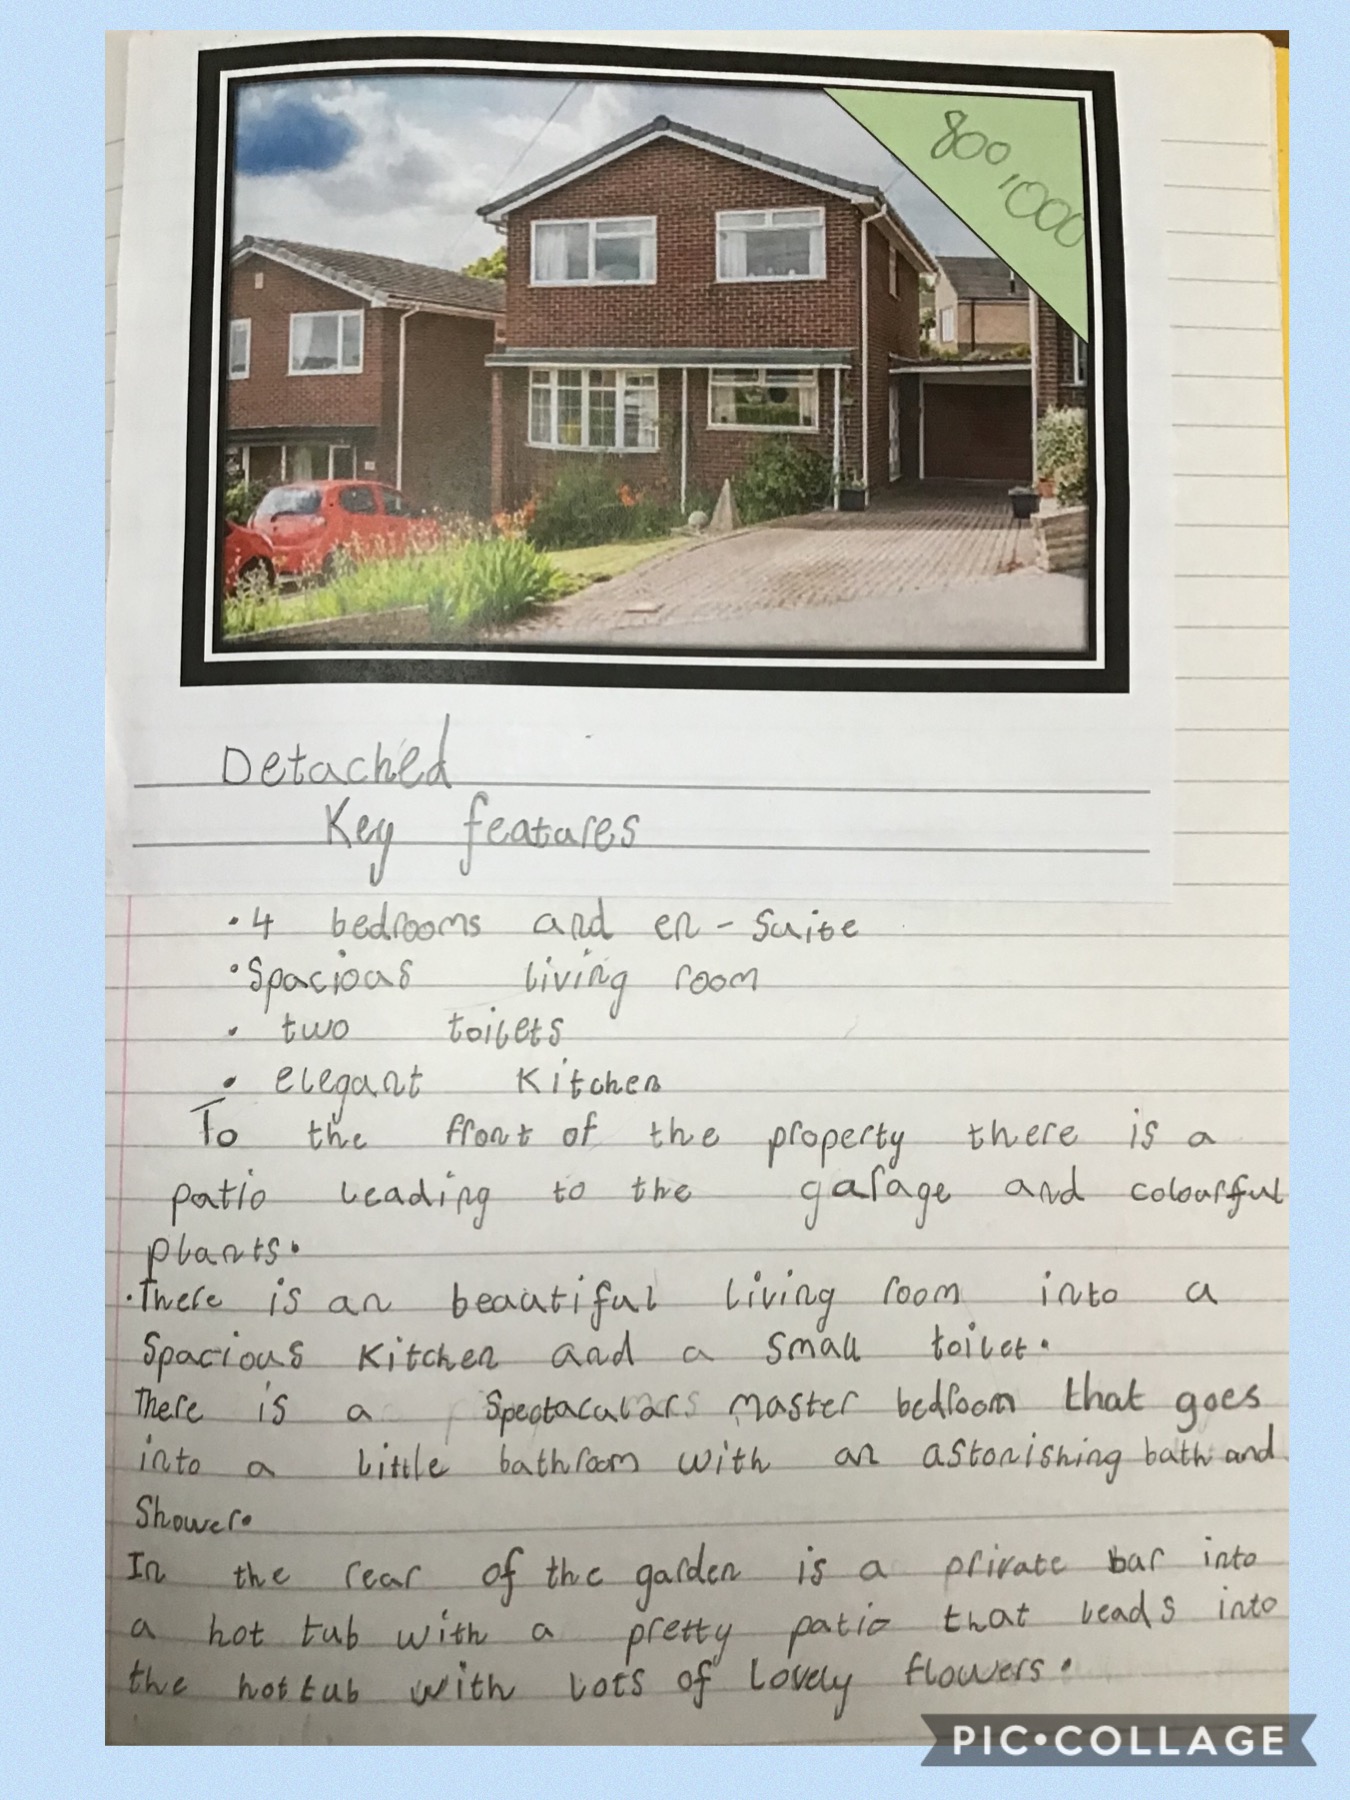 800
,000
Detached
Key features
• 4 bedrooms and en - Suite
• Spacious living room
• two toilets
• elegant Kitchen
To the front of the property there is a
patio leading to the garage and colourful
plants.
• There is an beautiful living room into a
Spacious Kitchen and a small toilet.
There is a Spectaculars master bedroom that goes
into a little bathroom with an astonishing bath and
Shower.
In the rear of the garden is a private bar into
a hot tub with a pretty patio that leads into
the hot tub with lots of lovely flowers.
PIC•COLLAGE